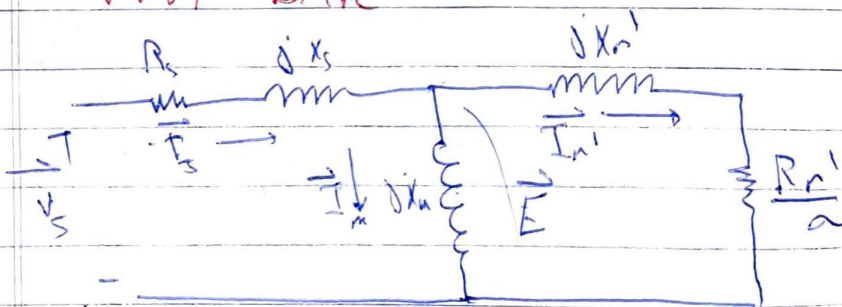 Rs jXs jXr'
Is Ir'
Vs Im jXm E Rr'/a
-